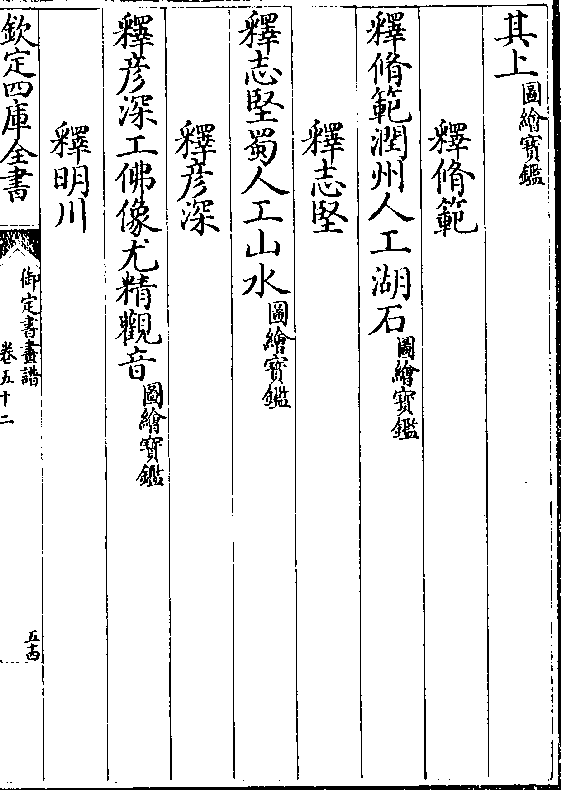 其上圖繪寶鑑
釋脩範
釋脩範潤州人工湖石圖繪寶鑑
釋志堅
釋志堅蜀人工山水圖繪寶鑑
釋彦深
釋彦深工佛像尤精觀音圖繪寶鑑
釋明川
欽定四庫全書
御定書畫譜
卷五十二
五十四